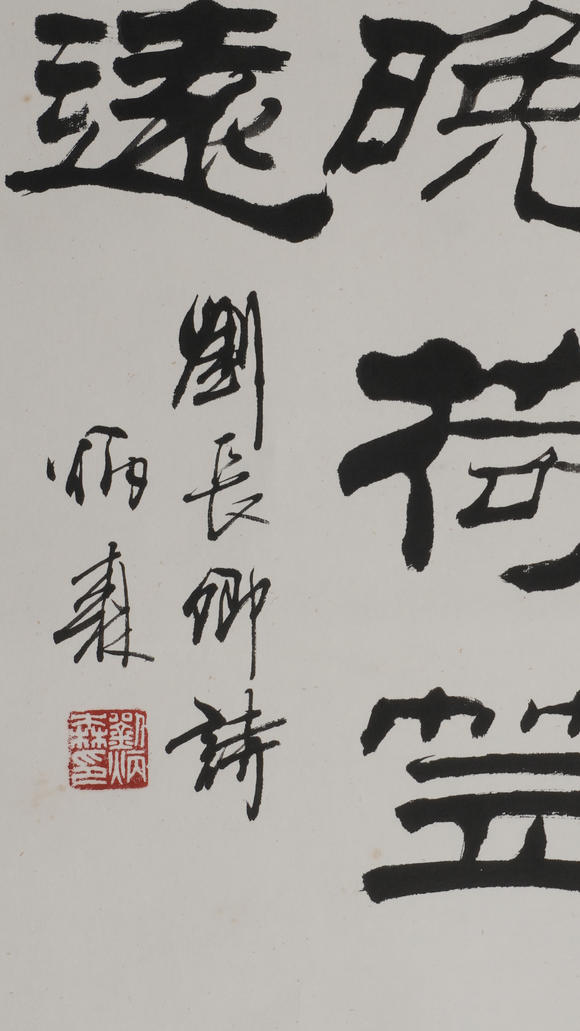 晚荷笠
遠
劉長卿詩
炳森
劉炳森印